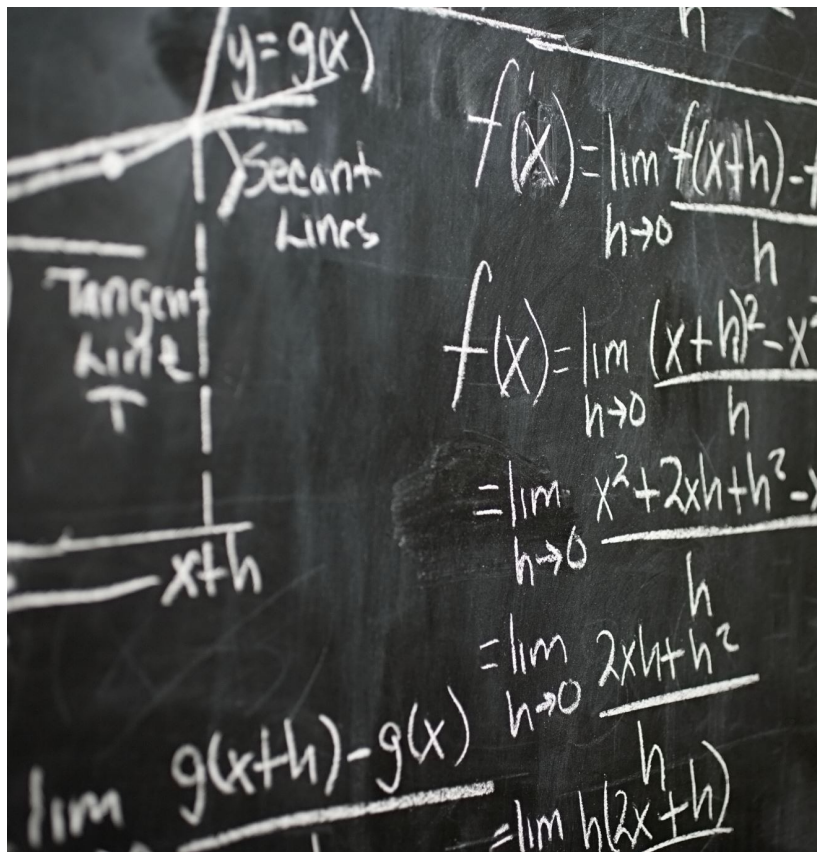 y=g(x)
Secant
Lines
Tangent
Line
T
x+h
lim g(x+h)-g(x)
h
f'(x)=lim f(x+h)-f
h→0 h
f(x)=lim (x+h)²-x²
h→0 h
=lim x²+2xh+h²-x
h→0 h
=lim 2xh+h²
h→0 h
=lim h(2x+h)